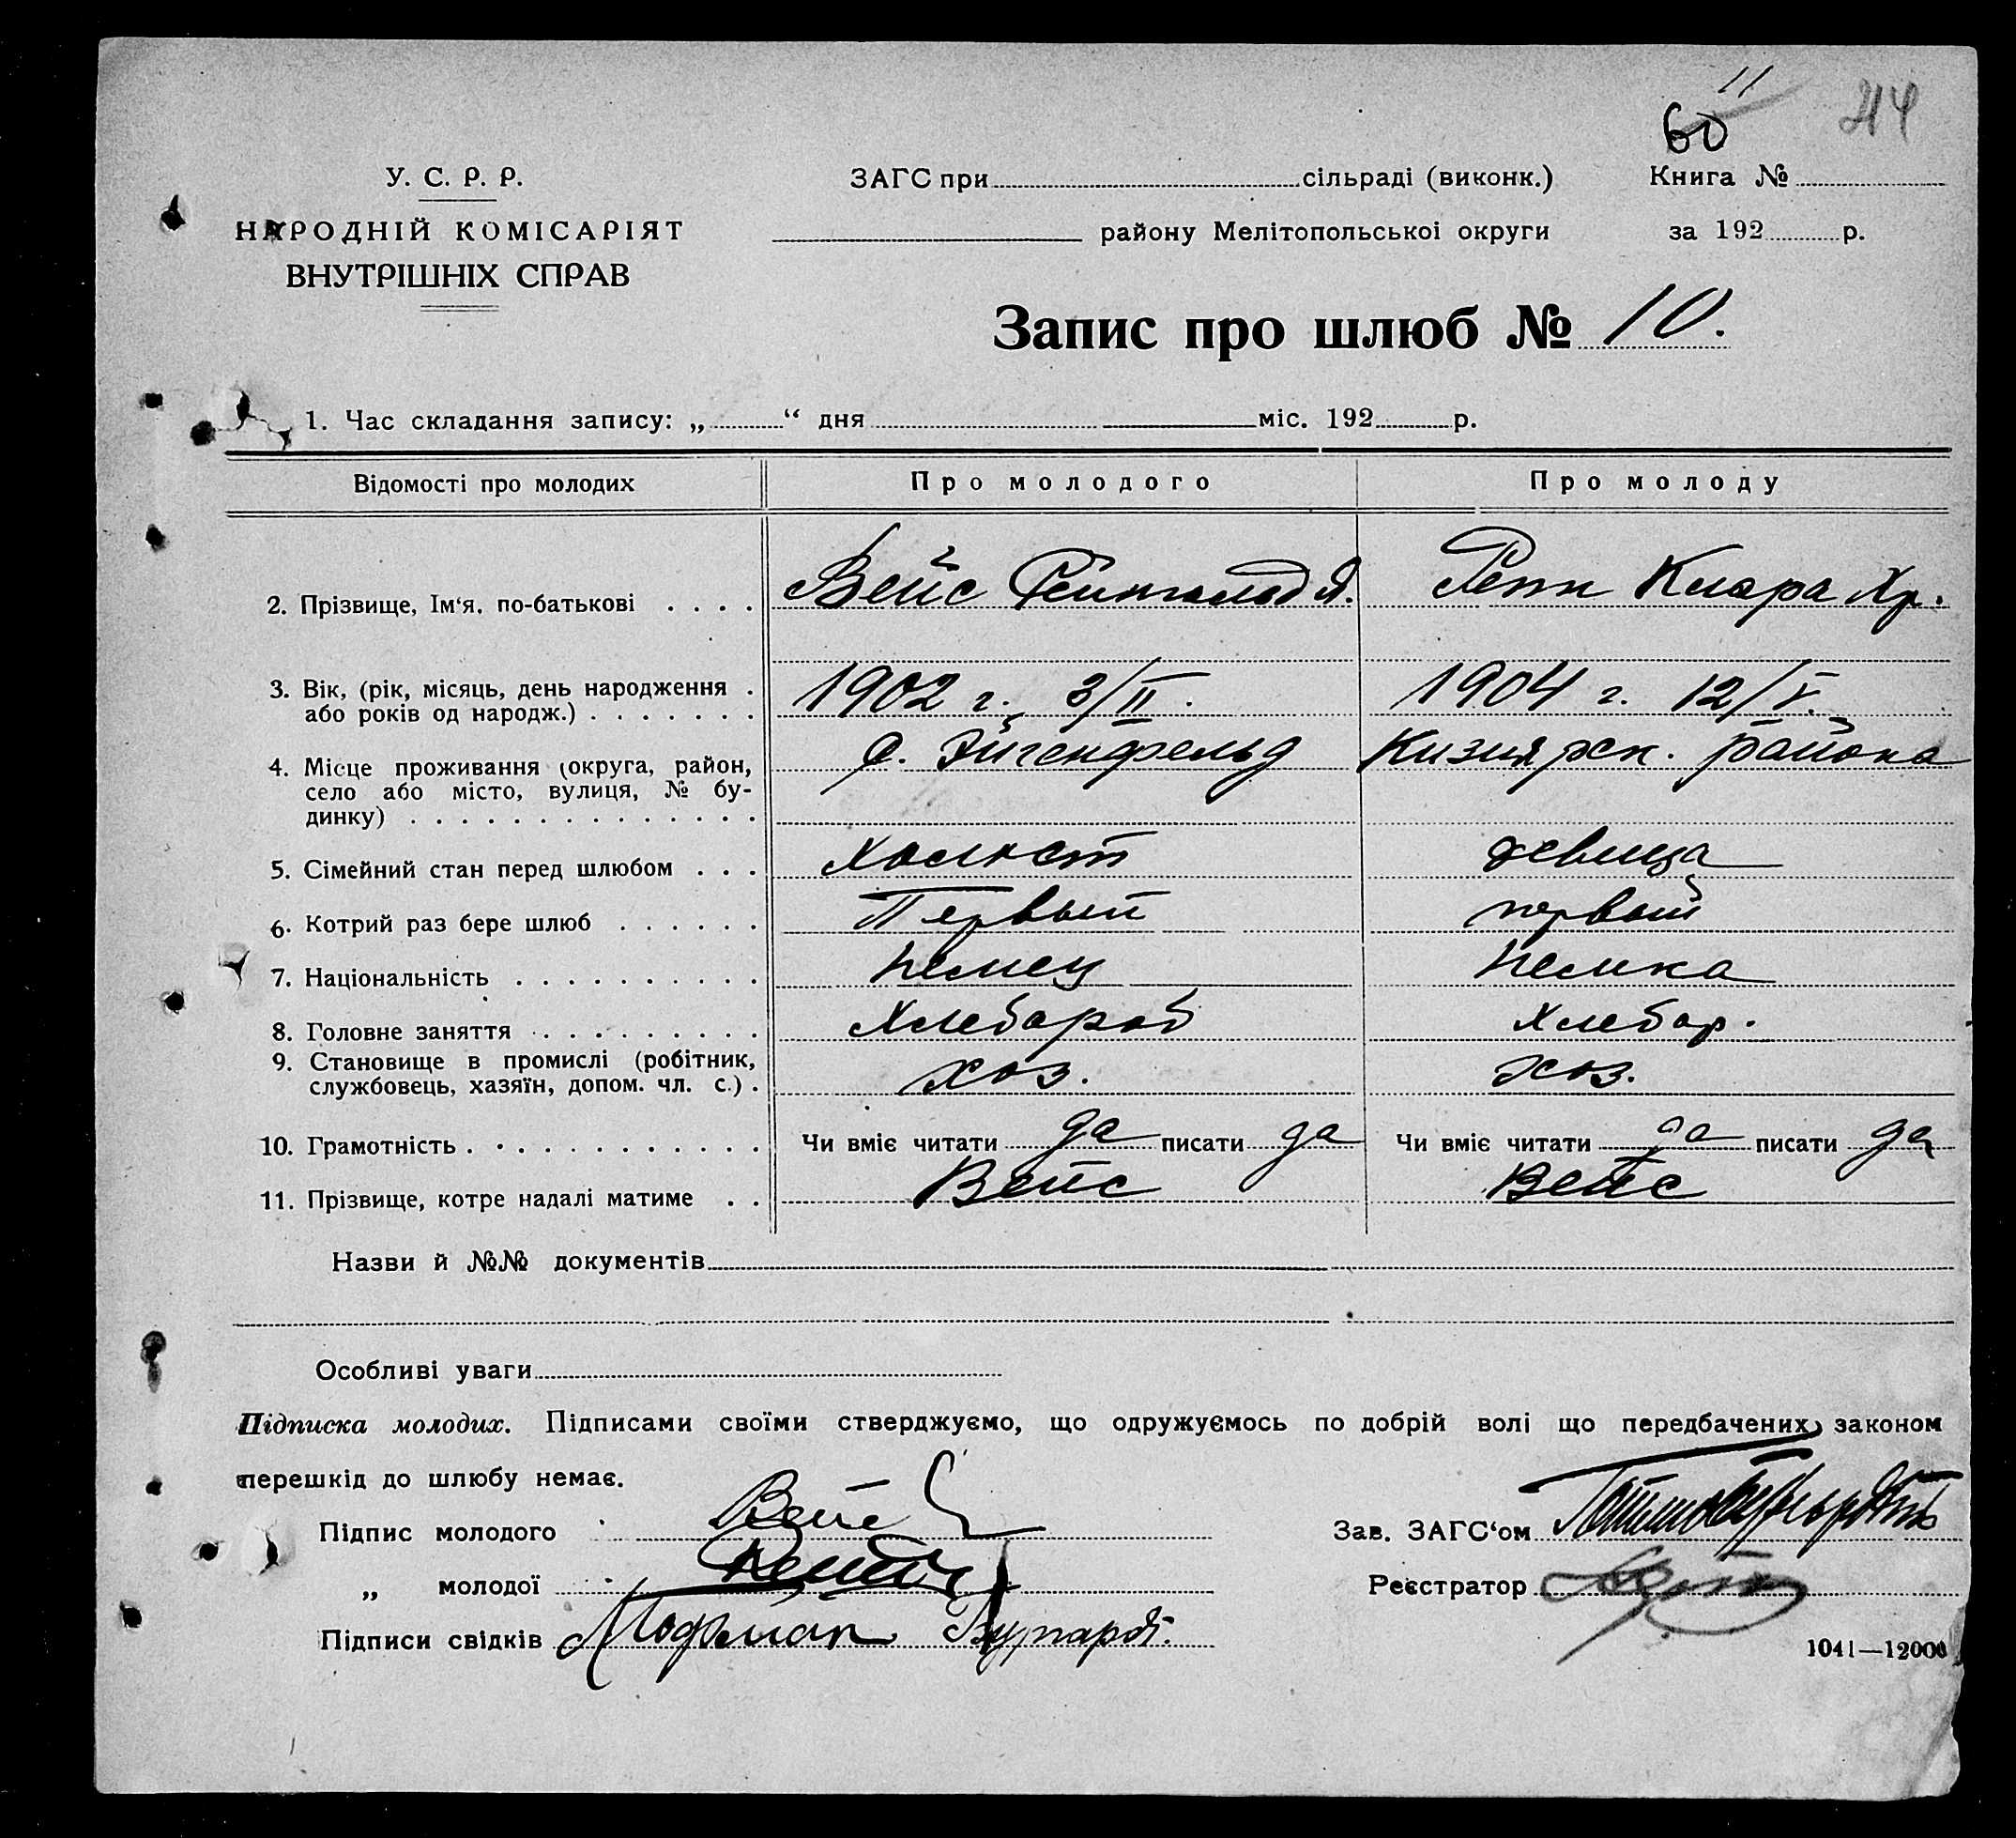 11
60 44
У. С. Р. Р.
НАРОДНІЙ КОМІСАРІЯТ
ВНУТРІШНІХ СПРАВ
ЗАГС при сільраді (виконк.)
району Мелітопольськоі округи
Книга №
за 192 р.
Запис про шлюб № 10.
1. Час складання запису: „ “ дня міс. 192 р.
Відомості про молодих Про молодого Про молоду
2. Прізвище, Ім‘я, по-батькові . . . . Вейс Рейнгольд Я. Репп Клара Хр.
3. Вік, (рік, місяць, день народження . або років од народж.) . . . . . . . 1902 г. 3/II. 1904 г. 12/V.
4. Місце проживання (округа, район, село або місто, вулиця, № будинку) . . . . . . . . . . . . . . . с. Эйгенфельд Кизиярск. района
5. Сімейний стан перед шлюбом . . . холост девица
6. Котрий раз бере шлюб . . . . . . Первый первый
7. Національність . . . . . . . . . . немец немка
8. Головне заняття . . . . . . . . . хлебороб хлебор.
9. Становище в промислі (робітник, службовець, хазяїн, допом. чл. с.) . хоз. хоз.
10. Грамотність . . . . . . . . . . . . Чи вміє читати да писати да Чи вміє читати да писати да
11. Прізвище, котре надалі матиме . . Вейс Вейс
Назви й №№ документів
Особливі уваги
Підписка молодих. Підписами своїми стверджуємо, що одружуємось по добрій волі що передбачених законом
перешкід до шлюбу немає.
Підпис молодого Вейс
„ молодої
Підписи свідків
Зав. ЗАГС‘ом
Реєстратор
1041—12000